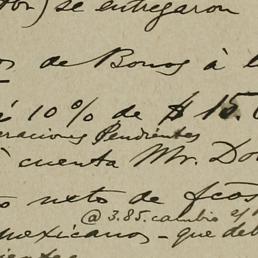 se entregaron
de Bonos à l
10% de $ 15.
eraciones Pendientes
à cuenta Mr. Do
neto de fcos
@ 3.85. cambio
mexicanos - que de